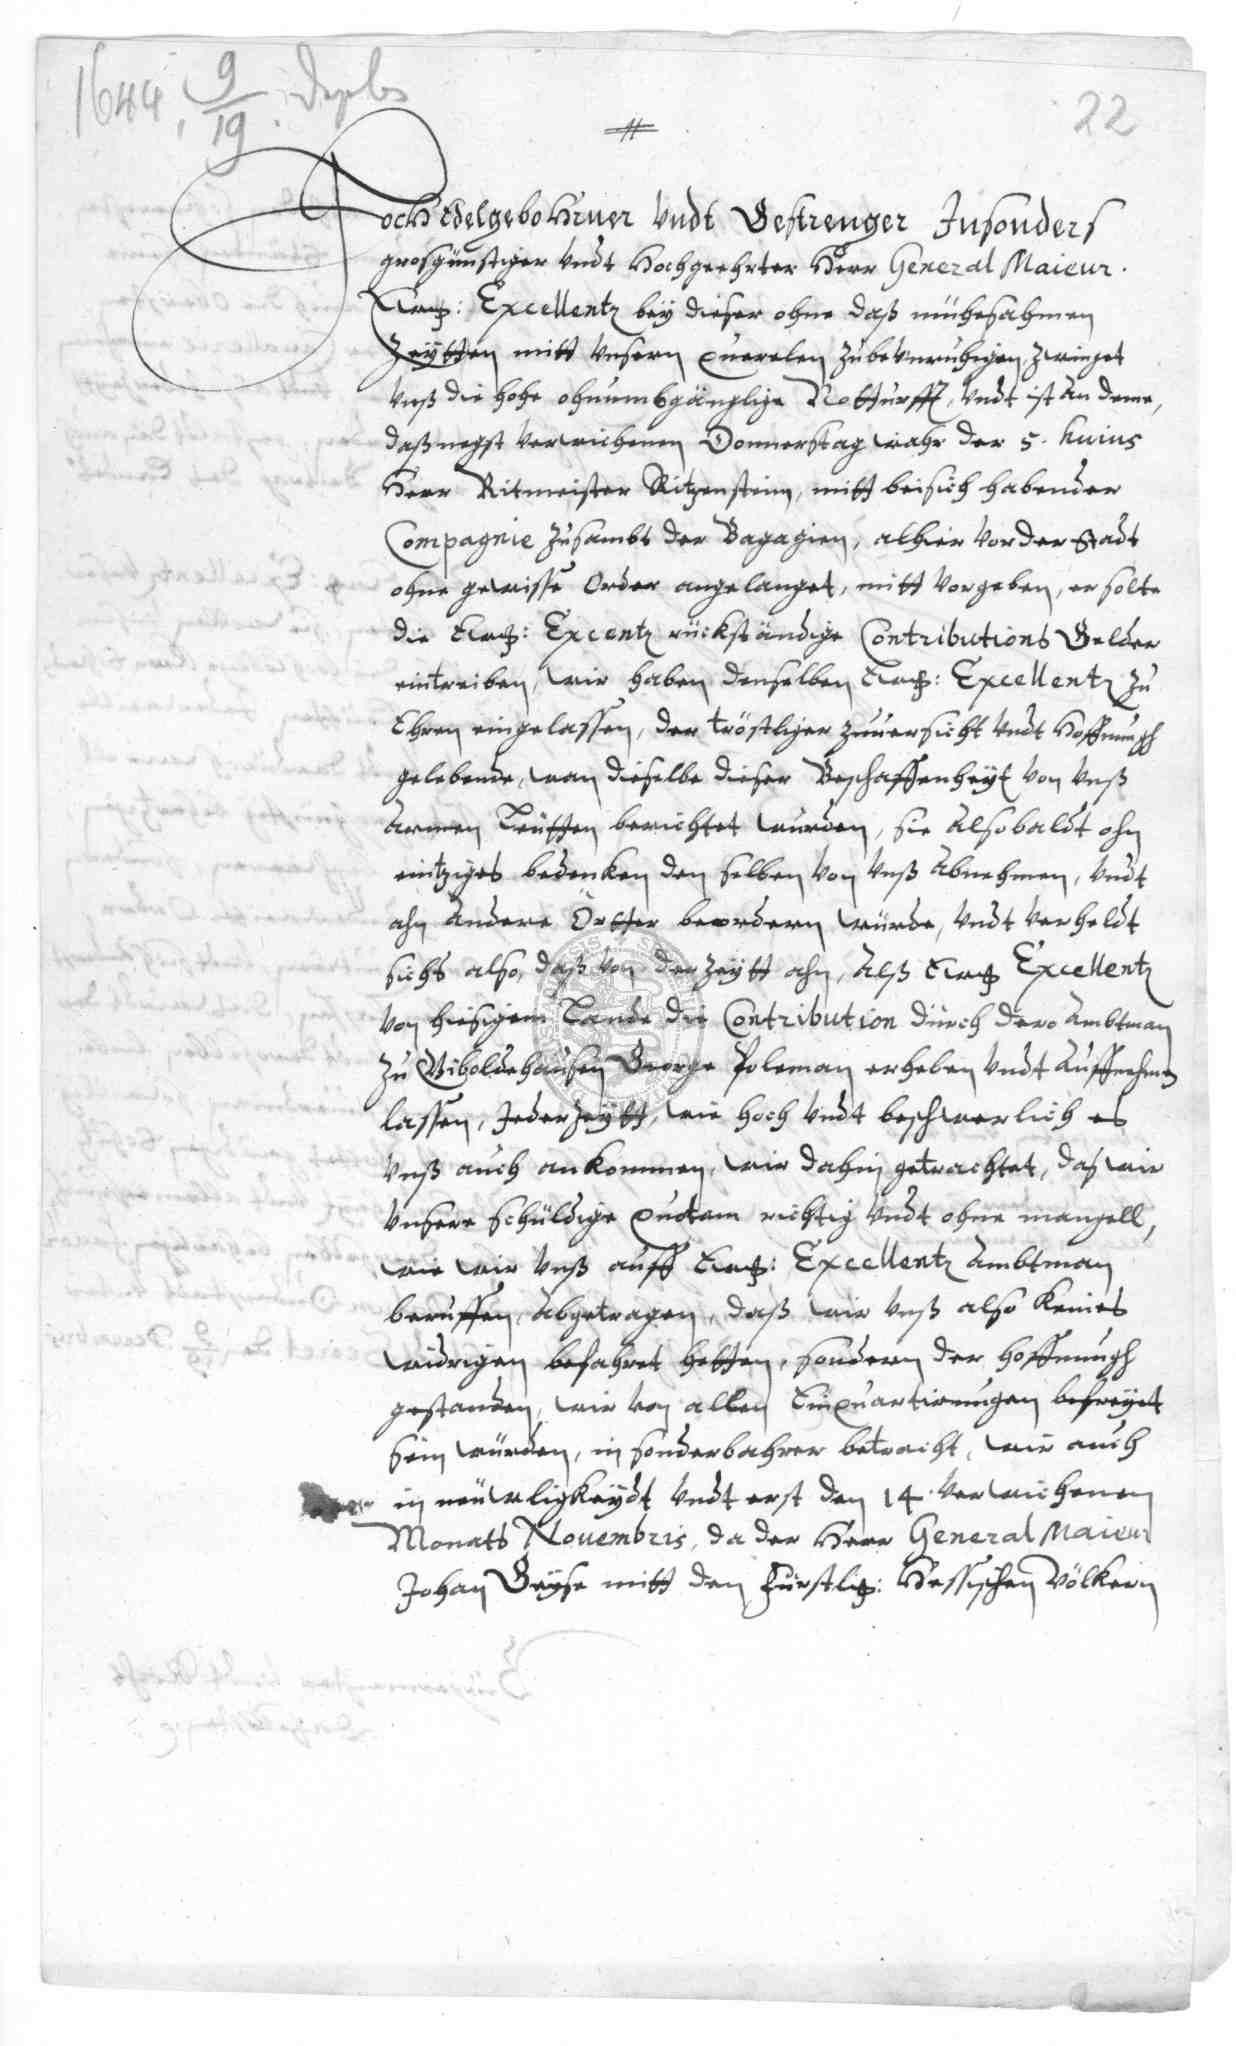 1644, 9/19. Dezbr
22
HocH Edelgebohrner Vndt Gestrenger Insonders
grosgünstiger Vndt Hochgeehrter Herr General Maieur.
Ewrg: Excellentz bey dieser ohne daß mühesahmen
Zeytten mitt Vnsern querelen Zubevnruhigen, Zwinget
Vnß die hohe ohnumbgänglige Notturfft, Vndt ist An deme,
daß negst Verwichenen Donnerstag wahr der 5. huius
Herr Ritmeister Ritzenstein, mitt beisich habender
Compagnie Zusambt der Bagagien, alhier Vor der Stadt
ohne gewisse Order angelanget, mitt Vorgeben, er solte
die Ewrg: Excentz rückständige Contributions Gelder
eintreiben, wir haben denselben Ewrg: Excellentz Zu
Ehren eingelassen, der tröstliger Zuuersicht Vndt Hoffnungh
gelebende, wan dieselbe dieser Beschaffenheyt Von Vnß
Armen Leütten berichtet würden, sie Alsobaldt ohn
eintziges bedenken den selben Von Vnß Abnehmen, Vndt
ahn Andere Örtter beordern würde, Vndt Verheldt
sichs also, daß Von der Zeytt ahn, Alß Ewrg Excellentz
Von hiesigem Lande die Contribution durch dero Ambtman
Zu Giboldehausen George Poleman erheben Vndt Auffnehmen
lassen, Jederzeytt, wie hoch Vndt beschwerlich es
Vnß auch ankommen, wir dahin getrachtet, daß wir
Vnsere schüldige quotam richtig Vndt ohne mangell,
wie wir Vnß auff Ewrg: Excellentz Ambtman
beruffen, Abgetragen, daß wir Vnß also Keines
widrigen befahret hetten, sondern der Hoffnungh
gestanden, wir Von allen Einquartirungen befreyet
sein würden, in sonderbahrer betracht, wir auch
in neüwligkeydt Vndt erst den 14. Verwichenen
Monats Nouembris, da der Herr General Maieur
Johan Geyse mitt den Fürstlig: Hessischen Völkern